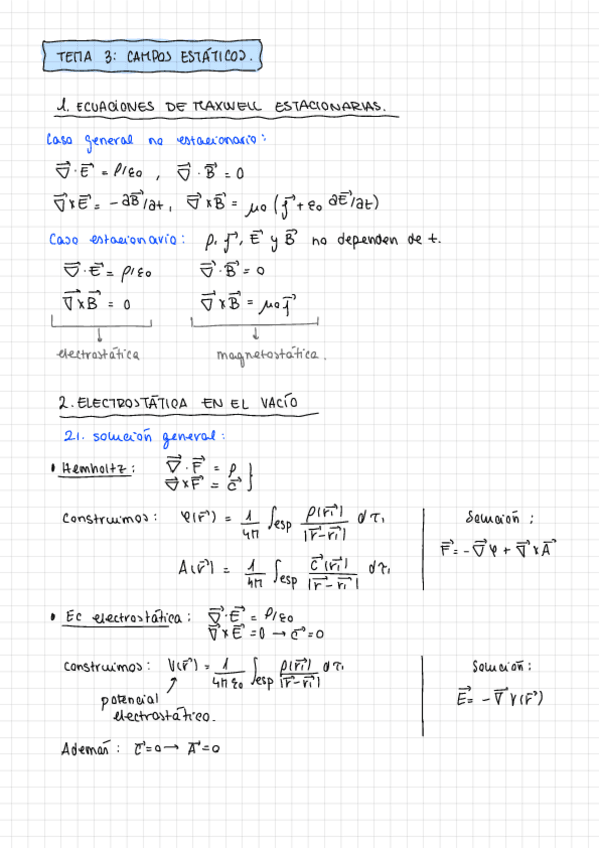 TEMA 3: CAMPOS ESTÁTICOS.
1. ECUACIONES DE MAXWELL ESTACIONARIAS.
Caso general no estacionario:
∇⃗·E⃗ = ρ/ε0 , ∇⃗·B⃗ = 0
∇⃗×E⃗ = -∂B⃗/∂t, ∇⃗×B⃗ = μ0 (J⃗ + ε0 ∂E⃗/∂t)
Caso estacionario: ρ, J⃗, E⃗ y B⃗ no dependen de t.
∇⃗·E⃗ = ρ/ε0 ∇⃗·B⃗ = 0
∇⃗×B⃗ = 0 ∇⃗×B⃗ = μ0 J⃗
electrostática magnetostática.
2. ELECTROSTÁTICA EN EL VACÍO
2.1. solución general:
• Hemholtz: ∇⃗·F⃗ = ρ
∇⃗×F⃗ = C⃗ }
Construimos: φ(r⃗) = 1/4π ∫esp ρ(r⃗1)/|r⃗-r⃗1| dτ1
Solución:
F⃗ = -∇⃗φ + ∇⃗×A⃗
A(r⃗) = 1/4π ∫esp C⃗(r⃗1)/|r⃗-r⃗1| dτ1
• Ec electrostática: ∇⃗·E⃗ = ρ/ε0
∇⃗×E⃗ = 0 → C⃗ = 0
Construimos: V(r⃗) = 1/4πε0 ∫esp ρ(r⃗1)/|r⃗-r⃗1| dτ1
Solución:
E⃗ = -∇⃗V(r⃗)
potencial
electrostático.
Además: C⃗=0 → A⃗=0